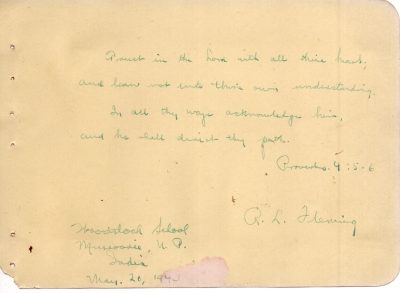 Trust in the Lord with all thine heart;
and lean not unto thine own understanding.
In all thy ways acknowledge him,
and he shall direct thy path.
Proverbs. 4:5-6
R. L. Fleming
Woodstock School
Mussoorie, U. P.
India
May. 20,